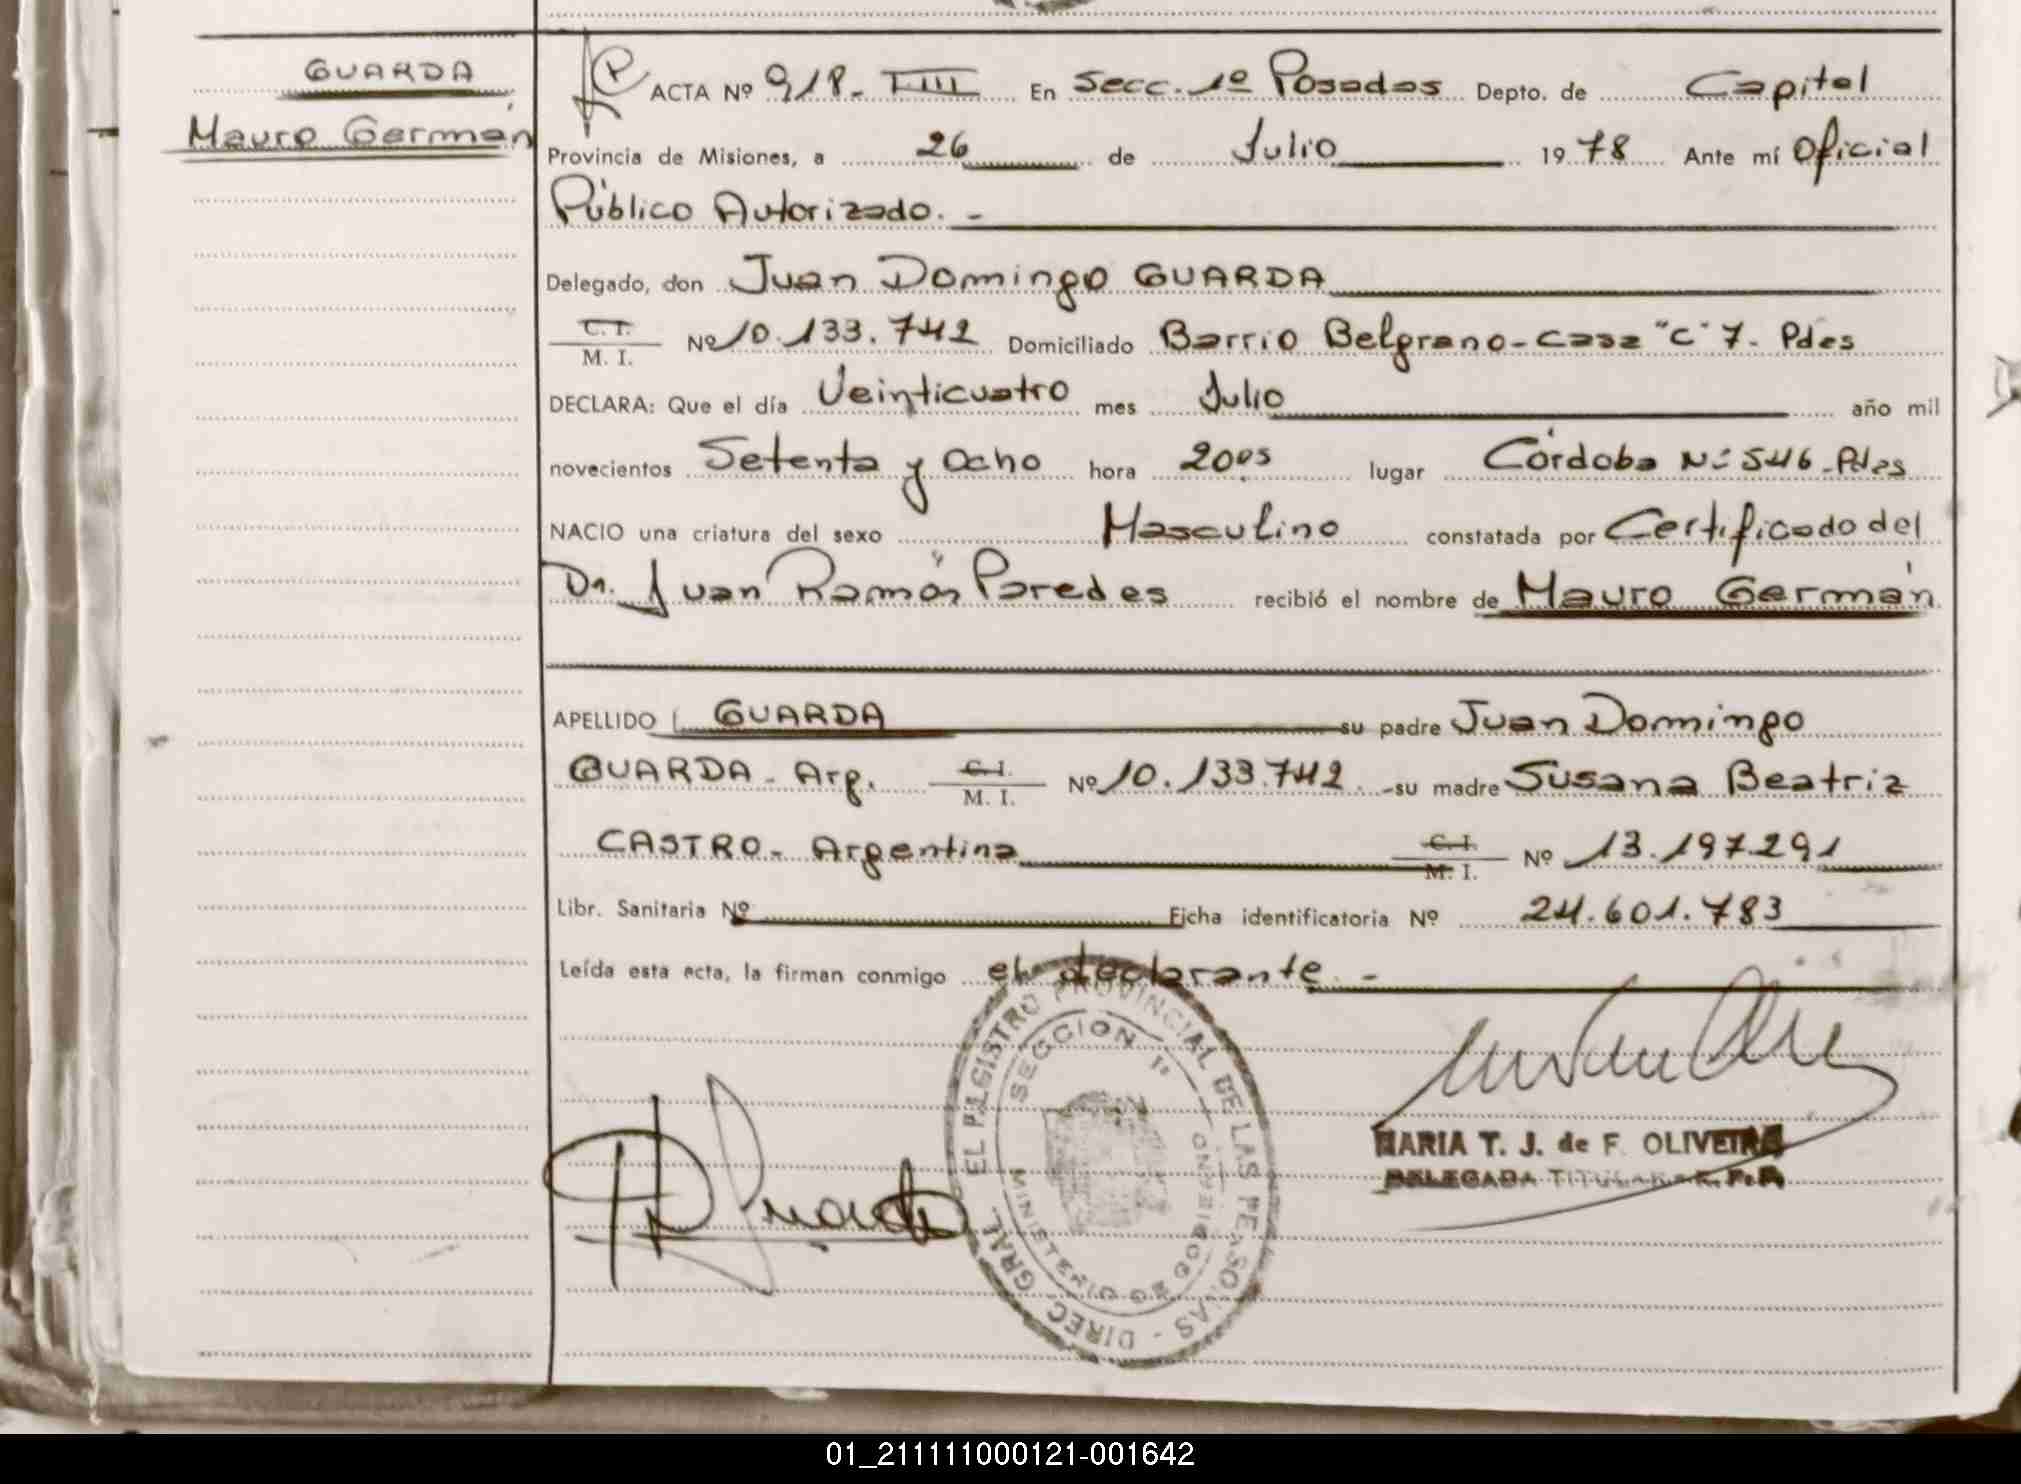 GUARDA
Mauro Germán
ACTA Nº 918. TIII En Secc. 1º Posadas Depto. de Capital
Provincia de Misiones, a 26 de Julio 19 78 Ante mí Oficial
Público Autorizado. -
Delegado, don Juan Domingo GUARDA
C. I.
M. I. Nº 10.133.742 Domiciliado Barrio Belgrano - casa "C" 7. Pdas
DECLARA: Que el día Veinticuatro mes Julio año mil
novecientos Setenta y Ocho hora 20.05 lugar Córdoba Nº 546 - Pdas
NACIO una criatura del sexo Masculino constatada por Certificado del
Dr. Juan Ramón Paredes recibió el nombre de Mauro Germán
APELLIDO GUARDA su padre Juan Domingo
GUARDA - Arg. C. I.
M. I. Nº 10.133.742. - su madre Susana Beatriz
CASTRO - Argentina C. I.
M. I. Nº 13.197.291
Libr. Sanitaria Nº Ficha identificatoria Nº 24.601.783
Leída esta acta, la firman conmigo el declarante. -
DIREC. GRAL. DEL REGISTRO PROVINCIAL DE LAS PERSONAS
SECCION 1ª
MINISTERIO DE GOBIERNO
MARIA T. J. de F. OLIVEIRA
DELEGADA TITULAR R. P. P.
01_211111000121-001642